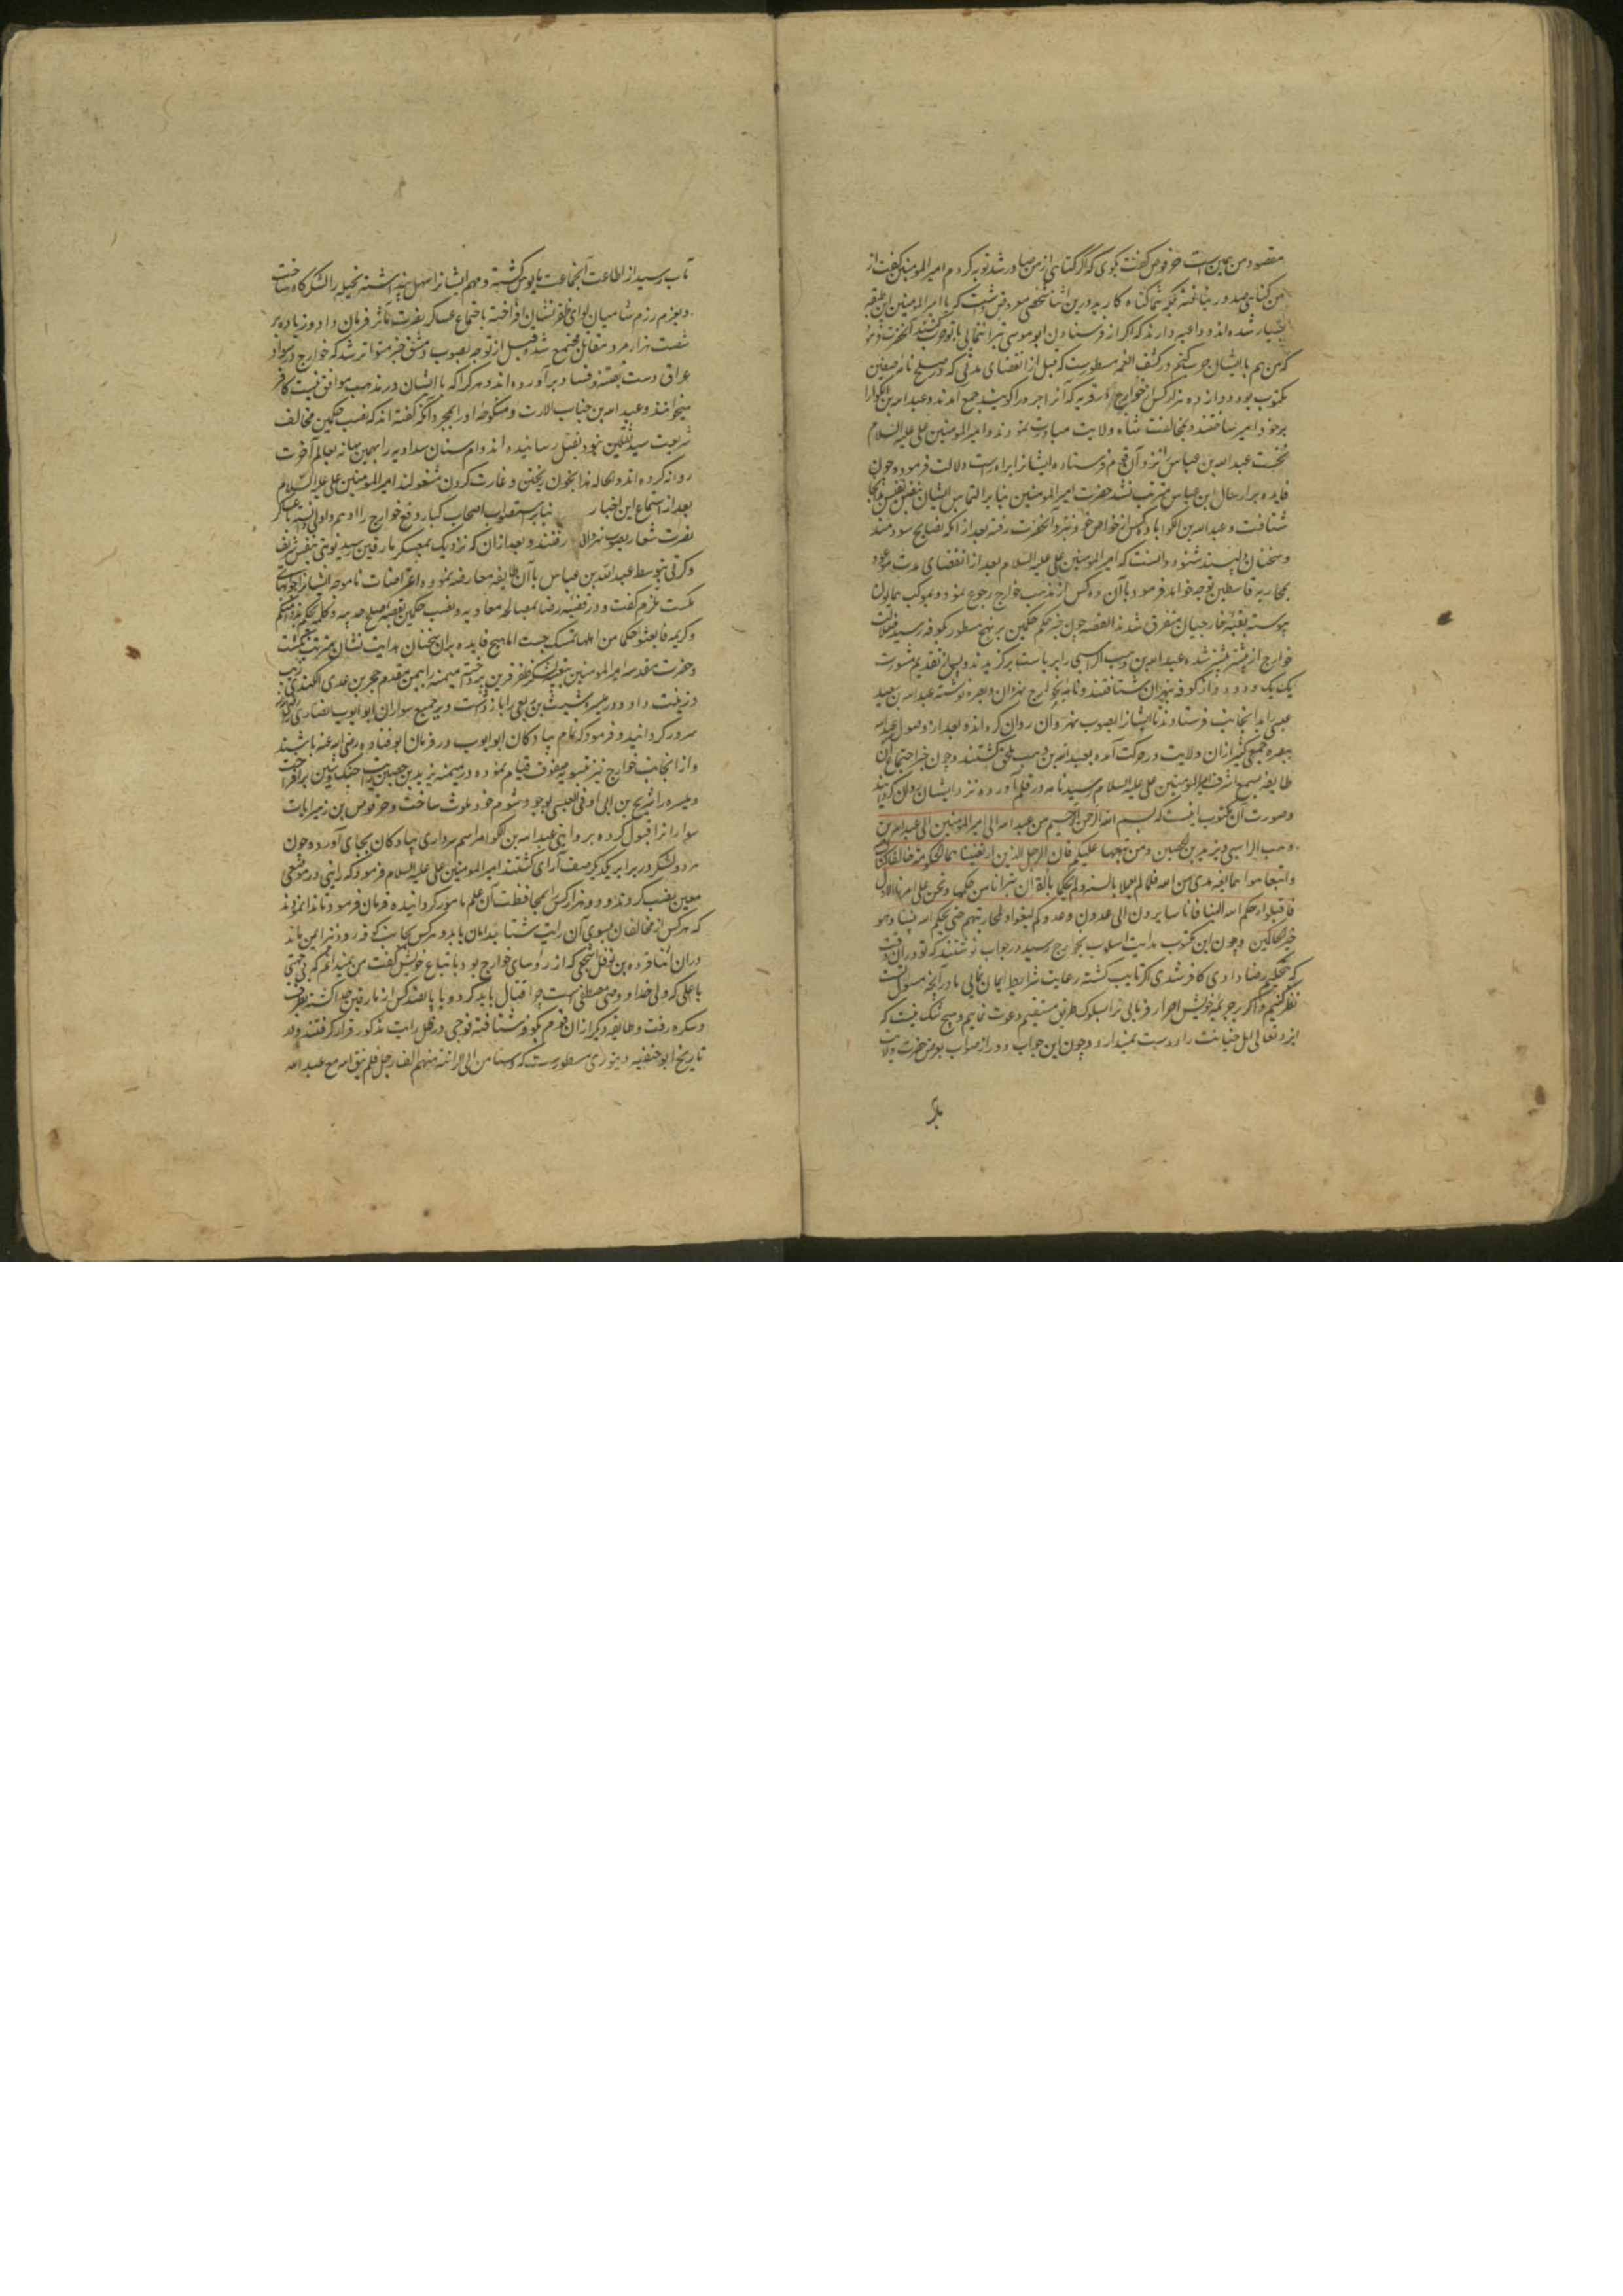 مقصود من همین است حرقوص گفت بگوی که اگر گناهی از من صادر شد توبه کردم امیر المومنین گفت از
من گناهی صدور نیافته بلکه شما گناه کارید درین اثنا شخصی معروض داشت که یا امیر المومنین این طبقه
بسیار شده اند و داعیه دارند که اگر از فرستادن ابو موسی تبرا ننمایی با تو حرب کنند آنحضرت فرمود
که من هم با ایشان حرب کنم و در کشف الغمه مسطورست که قبل از انقضای مدتی که در صلح نامه صفین
مکتوب بود دوازده هزار کس از خوارج در قریه که آنرا حرورا کویند جمع آمدند و عبد الله بن الکوا را
بر خود امیر ساختند و بمخالفت شاه ولایت مبادرت نمودند و امیر المومنین علی علیه السلام
نخست عبد الله بن عباس را نزد آن قوم فرستاد و ایشانرا براه راست دلالت فرمود و چون
فایده بر ارسال ابن عباس مترتب نشد حضرت امیر المومنین بنا بر التماس ایشان بنفس نفیس بدانجا
شتافت و عبد الله بن الکوا با ده کس از خواص خود نزد آنحضرت رفته بعد از آنکه نصایح سودمند
و سخنان دلپسند شنود دانست که امیر المومنین علی علیه السلام بعد از انقضای مدت موعود
بمحاربه قاسطین توجه خواهد فرمود با آن ده کس از مذهب خوارج رجوع نمود و بموکب همایون
پیوسته بقیه خارجیان متفرق شدند القصه چون خبر حکم حکمین بر نهج مسطور بکوفه رسید ضلالت
خوارج از پیشتر بیشتر شده عبد الله بن وهب الراسبی را بریاست برگزیدند و پس از تقدیم مشورت
یک یک و دو دو از کوفه بنهروان شتافتند و نامه بخوارج بصره نوشته عبد الله بن سعید
عبسی را بدانجانب فرستادند تا ایشانرا بصوب نهروان روان کرداند و بعد از وصول عبد الله
ببصره جمعی کثیر از ان ولایت در حرکت آمده بعبد الله بن وهب ملحق کشتند و چون خبر اجتماع آن
طایفه بسمع اشرف امیر المومنین علی علیه السلام رسید نامه در قلم آورده نزد ایشان روان کردانید
وصورت آن مکتوب اینست که بسم الله الرحمن الرحیم من عبد الله الی امیر المومنین الی عبد الله بن
وهب الراسبی و یزید بن الحصین ومن تبعهما علیکم فان الرجلین الذین ارتضینا بهما للحکومة خالفا کتاب
واتبعا هوا هما بغیر هدی من الله فلما لم یعملا بالسنة ولم یحکما بالقران تبرانا من حکمهما ونحن علی امرنا الاول
فاقبلوا رحمکم الله الینا فانا سایرون الی عدونا وعدوکم لنعود لمحاربتهم حتی یحکم الله بیننا وهو
خیر الحاکمین و چون این مکتوب هدایت اسلوب بخوارج رسید در جواب نوشتند که تو در آن وقت
که بتحکیم رضا دادی کافر شدی اگر تایب کشته رعایت شرایط ایمان نمایی ما در آنچه مسول تست
نظر کنیم و اگر بر جریمه خویش اصرار فرمایی ترا بسلوک طریق مستقیم دعوت نماییم و هیچ شک نیست که
ایزد تعالی اهل خیانت را دوست نمیدارد و چون این جواب دور از صواب بعرض حضرت ولایت
مآب رسید از اطاعت آنجماعت مایوس کشته و مهم ایشانرا سهل پنداشته نخیله را لشکرگاه ساخت
و بعزم رزم شامیان لوای ظفر نشان افراخته باجتماع عساکر نصرت مآثر فرمان داد و زیاده بر
شصت هزار مرد مقاتل مجتمع شده قبل از توجه بصوب دمشق خبر متواتر شد که خوارج در سواد
عراق دست بفتنه و فساد برآورده اند و هر کرا که با ایشان در مذهب موافق نیست کافر
میخوانند و عبد الله بن خباب الارت و منکوحه او را بمجرد آنکه گفته اند که نصب حکمین مخالف
شریعت سید ثقلین نبود بقتل رسانیده اند و ام سنان صیداویه را بهمین بهانه بعالم آخرت
روانه کرده اند و الحاله هذا بخون ریختن و غارت کردن مشغولند امیر المومنین علی علیه السلام
بعد از استماع این اخبار بنا بر استصواب اصحاب کبار دفع خوارج را اهم و اولی دانسته با عساکر
نصرت شعار بصوب نهروان رفتند و بعد از ان که نزدیک بمعسکر مارقین رسید نوبتی بنفس شریف
و کرتی بتوسط عبد الله بن عباس با آن طایفه معارضه نمود و اعتراضات ناموجه ایشانرا جوابهای
مسکت ملزم گفت و در قضیه رضا بمصالحه معاویه و نصب حکمین بقصه صلح حدیبیه و کلمه یحکم به ذوا عدل منکم
و کریمه فابعثوا حکما من اهله تمسک جست اما هیچ فایده بران سخنان هدایت نشان مترتب نکشت
و حضرت مقدسه امیر المومنین بتعبیه لشکر ظفر قرین پرداخته میمنه را بیمن مقدم حجر بن عدی الکندی زیب
و زینت داد و در میسره شیث بن ربعی را باز داشت و بر جمیع سواران ابو ایوب انصاری را
سرور کردانید و فرمود که تمام پیادکان ابو ایوب در فرمان ابو قتاده رضی الله عنه باشند
و از انجانب خوارج نیز بتسویه صفوف قیام نموده در میمنه یزید بن حصین رایت جنک و کین برافراخت
و میسره را شریح بن ابی اوفی العبسی بوجود شوم خود ملوث ساخت و حرقوص بن زهیر ایالت
سوارانرا قبول کرده بروایتی عبد الله بن الکوا مراسم سرداری پیادکان بجای آورد و چون
هر دو لشکر در برابر یکدیکر صف آرای کشتند امیر المومنین علی علیه السلام فرمود که رایتی در موضعی
معین نصب کردند و دو هزار کس را بمحافظت آن علم مامور کردانیده فرمان فرمود تا ندا کردند
که هر کس از مخالفان بسوی آن رایت شتابد امان یابد و هر کس بجانب کوفه رود نیز ایمن باشد
دران اثنا فروه بن نوفل اشجعی که از رؤسای خوارج بود با اتباع خویش گفت من نمیدانم که بچه جهت
با علی که ولی خدا و وصی مصطفی است چرا قتال باید کرد و با پانصد کس از مارقین جدا کشته بطرف
دسکره رفت و طایفه دیکر ازان قوم بکوفه شتافته فوجی در ظل رایت مذکور قرار گرفتند و در
تاریخ ابو حنیفه دینوری مسطورست که واستامن الی الرایة منهم الف رجل فلم یبق الا مع عبد الله